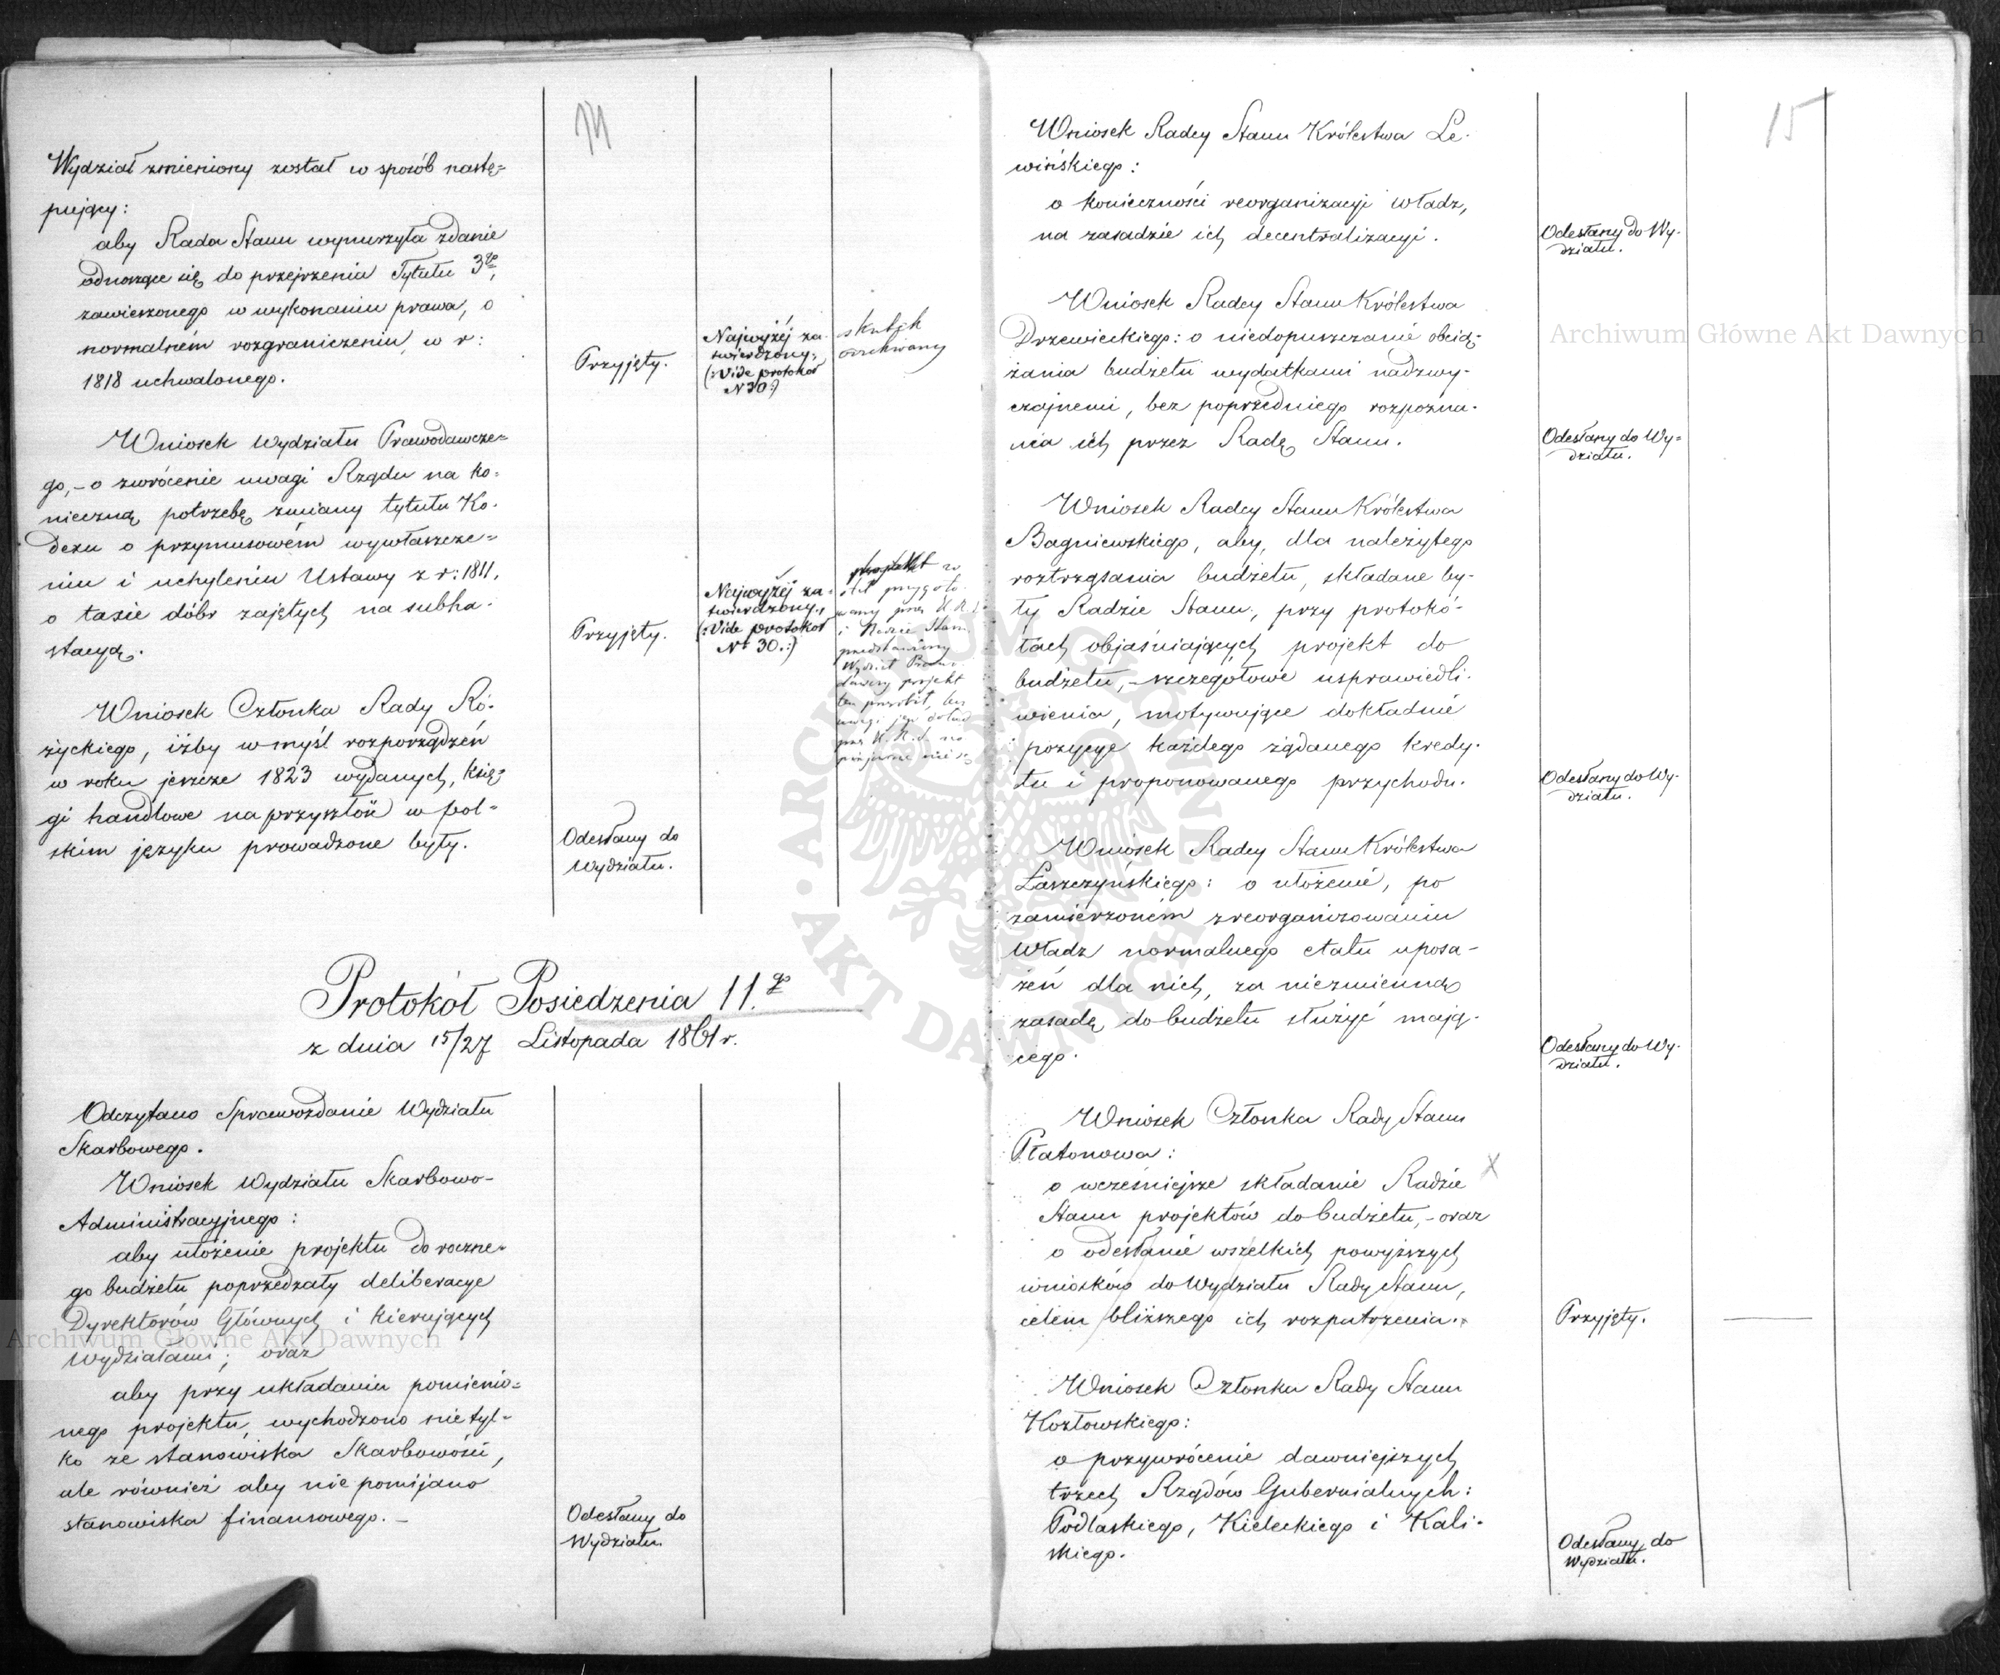 14
Wydział zmieniony został w sposób nastę=
pujący:
aby Rada Stanu wynurzyła zdanie
odnoszące się do przejrzenia Tytułu 3go,
zawieszonego w wykonaniu prawa, o
normalném rozgraniczeniu, w r:
1818 uchwalonego.
Przyjęty.
Najwyżéj za-
twierdzony,
(:Vide protokół
N 30:)
skutek
oczekiwany
Wniosek Wydziału Prawodawcze=
go,- o zwrócenie uwagi Rządu na ko-
nieczną potrzebę zmiany tytułu Ko-
dexu o przymusowém wywłaszcze=
niu i uchyleniu Ustawy z r: 1811,
o taxie dóbr zajętych na subha-
stacyą.
Przyjęty.
Najwyżéj za-
twierdzony,
(:Vide protokół
Nr 30.:)
projekt
przygoto
wany przez K.R.
i Radzie Stanu
przedstawiony
Wydział Prawo
dawczy projekt
ten
uwagi
przez K.R.
Wniosek Członka Rady Ró-
życkiego, iżby w myśl rozporządzeń
w roku jeszcze 1823 wydanych, księ-
gi handlowe na przyszłość w pol-
skim języku prowadzone były.
Odesłany do
Wydziału.
Protokół Posiedzenia 11.go
z dnia 15/27 Listopada 1861 r.
Odczytano Sprawozdanie Wydziału
Skarbowego.
Wniosek Wydziału Skarbowo-
Administracyjnego:
aby ułożenie projektu do roczne-
go budżetu poprzedzały deliberacye
Dyrektorów Głównych i kierujących
Wydziałami; oraz
aby przy układaniu pomienio=
nego projektu, wychodzono nie tyl-
ko ze stanowiska Skarbowości,
ale również aby nie pomijano
stanowiska finansowego. -
Odesłany do
Wydziału.
15
Wniosek Radcy Stanu Królestwa Le-
wińskiego:
o konieczności reorganizacyi władz,
na zasadzie ich decentralizacyi.
Odesłany do Wy-
działu.
Wniosek Radcy Stanu Królestwa
Drzewieckiego: o niedopuszczanie obcią-
żania budżetu wydatkami nadzwy-
czajnemi, bez poprzedniego rozpozna-
nia ich przez Radę Stanu.
Odesłany do Wy=
działu.
Wniosek Radcy Stanu Królestwa
Bagniewskiego, aby, dla należytego
roztrząsania budżetu, składane by-
ły Radzie Stanu, przy protokó-
łach objaśniających projekt do
budżetu,- szczegółowe usprawiedli-
wienia, motywujące dokładnie
pozycye każdego żądanego kredy-
tu i proponowanego przychodu.
Odesłany do Wy-
działu.
Wniosek Radcy Stanu Królestwa
Łaszczyńskiego: o ułożenie, po
zamierzoném zreorganizowaniu
Władz normalnego etatu uposa-
żeń dla nich, za niezmienną
zasadę do budżetu służyć mają-
cego.
Odesłany do Wy-
działu.
Wniosek Członka Rady Stanu
Płatonowa:
o wcześniejsze składanie Radzie
Stanu projektów do budżetu,- oraz
o odesłanie wszelkich powyższych
wniosków do Wydziału Rady Stanu,
celem bliższego ich rozpatrzenia.
Przyjęty.
Wniosek Członka Rady Stanu
Kozłowskiego:
o przywrócenie dawniejszych
trzech Rządów Gubernialnych:
Podlaskiego, Kieleckiego i Kali-
skiego.
Odesłany do
Wydziału.
Archiwum Główne Akt Dawnych
Archiwum Główne Akt Dawnych
ARCHIWUM GŁÓWNE • AKT DAWNYCH •